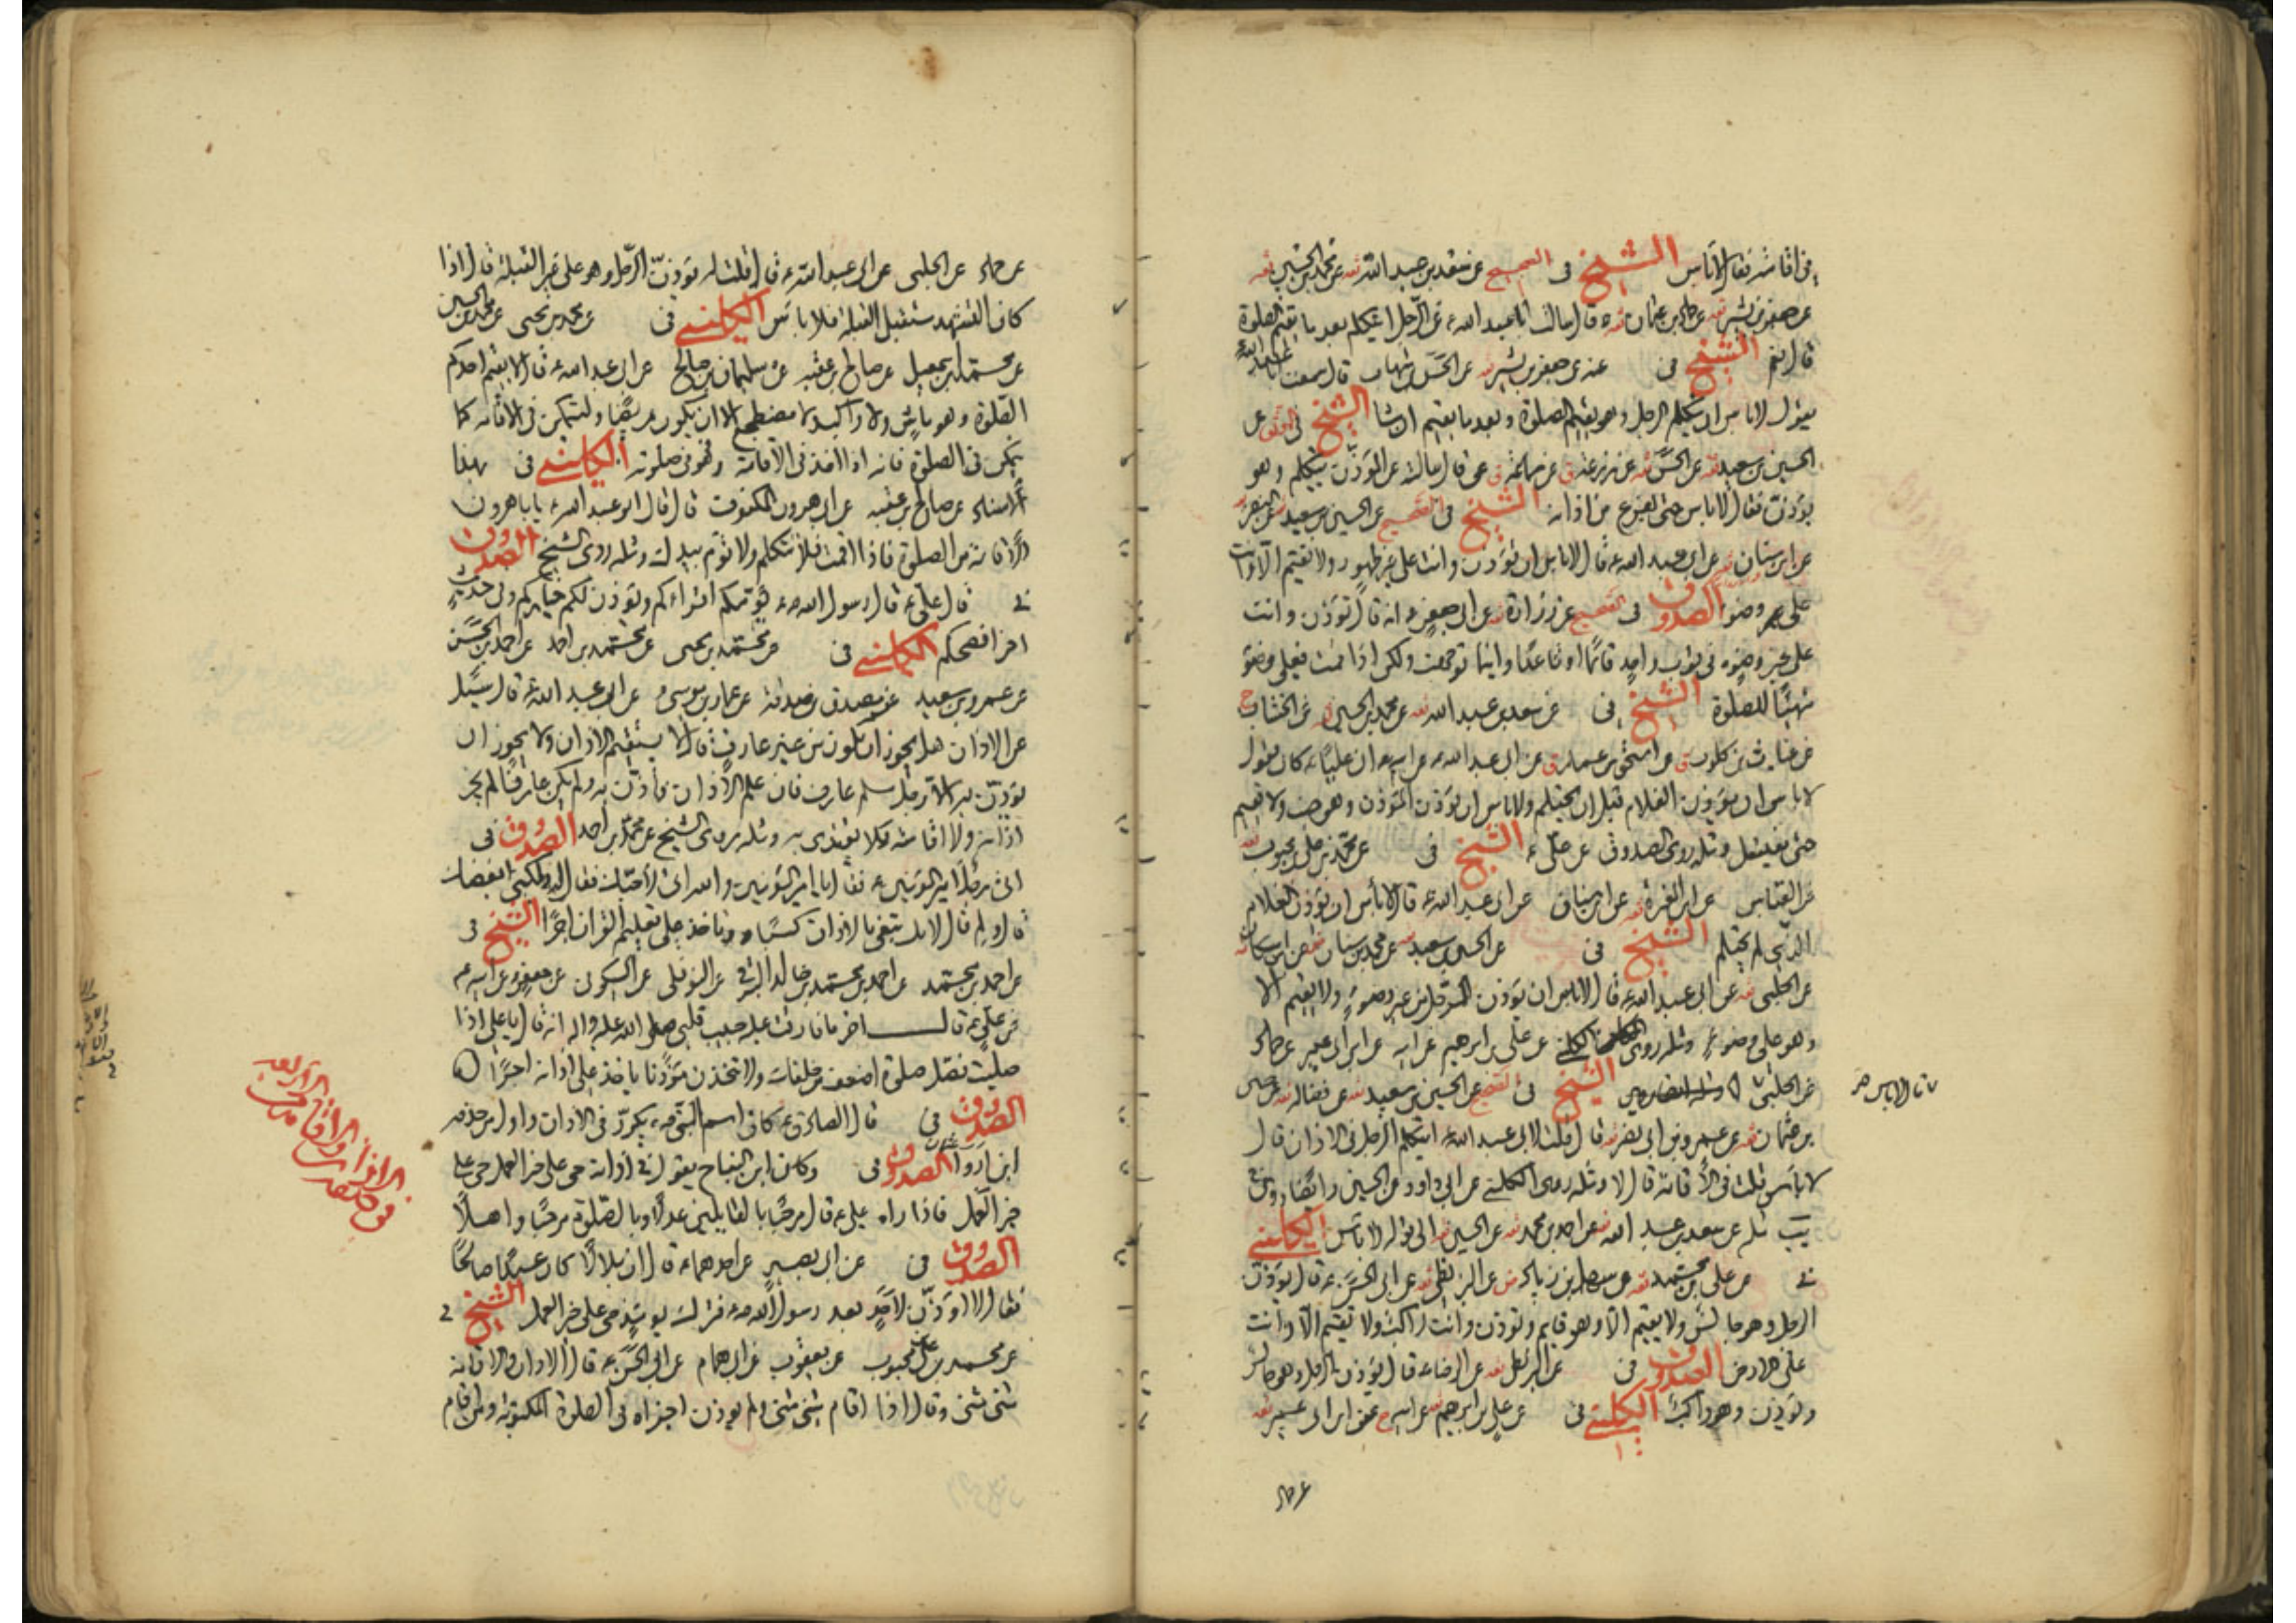 في اقامته فقال لا باس الشيخ في الصحيح عن سعد بن عبد الله عن محمد بن الحسين
عن جعفر بن بشير عن حماد بن عثمان قال سالت ابا عبد الله ع عن الرجل ايتكلم بعد ما يقيم الصلوة
قال نعم الشيخ في عنه عن جعفر بن بشير عن الحسن بن شهاب قال سمعت ابا عبد الله ع
يقول لا باس ان يتكلم الرجل وهو يقيم الصلوة وبعد ما يقيم ان شاء الشيخ في الموثق عن
الحسين بن سعيد عن الحسن عن زرعة عن سماعة قال سالته عن المؤذن يتكلم وهو
يؤذن فقال لا باس حتى يفرغ من اذانه الشيخ في الصحيح عن الحسين بن سعيد عن النضر
عن ابن سنان عن ابي عبد الله ع قال لا باس ان تؤذن وانت على غير طهور ولا تقيم الا وانت
على وضوء الصدوق في الصحيح عن زرارة عن ابي جعفر ع انه قال تؤذن وانت
على غير وضوء في ثوب واحد قائما او قاعدا واينما توجهت ولكن اذا اقمت فعلى وضوء
متهيئا للصلوة الشيخ في عن سعد بن عبد الله عن محمد بن الحسين عن الخشاب
عن غياث بن كلوب عن اسحق بن عمار عن ابي عبد الله ع عن ابيه ان عليا ع كان يقول
لا باس ان يؤذن الغلام قبل ان يحتلم ولا باس ان يؤذن المؤذن وهو جنب ولا يقيم
حتى يغتسل ومثله روى الصدوق عن علي ع الشيخ في عن محمد بن علي بن محبوب
عن العباس عن ابن المغيرة عن ابن سنان عن ابي عبد الله ع قال لا باس ان يؤذن الغلام
الذي لم يحتلم الشيخ في عن الحسين بن سعيد عن محمد بن سنان عن ابن مسكان
عن الحلبي عن ابي عبد الله ع قال لا باس ان يؤذن الرجل من غير وضوء ولا يقيم الا
وهو على وضوء ومثله روى الكليني عن علي بن ابرهيم عن ابيه عن ابن ابي عمير عن حماد
عن الحلبي الشيخ في الصحيح عن الحسين بن سعيد عن فضالة عن حسين
قال لا باس
بن عثمان عن عمرو بن ابي نصر قال قلت لابي عبد الله ع ايتكلم الرجل في الاذان قال
لا باس قلت في الاقامة قال لا ومثله روى الكليني عن ابي داود عن الحسين وايضا روى في
يب مثله عن سعد بن عبد الله عن احمد بن محمد عن الحسين الى قوله لا باس الكليني
في عن علي بن محمد عن سهل بن زياد عن البزنطي عن ابي الحسن ع قال يؤذن
الرجل وهو جالس ولا يقيم الا وهو قائم وتؤذن وانت راكب ولا تقيم الا وانت
على الارض الصدوق في عن البزنطي عن الرضا ع قال يؤذن الرجل وهو جالس
ويؤذن وهو راكب الكليني في عن علي بن ابرهيم عن ابيه عن ابن ابي عمير
عن حماد
عن حماد عن الحلبي عن ابي عبد الله ع قال قلت له يؤذن الرجل وهو على غير القبلة قال اذا
كان التشهد مستقبل القبلة فلا باس الكليني في عن محمد بن يحيى عن محمد بن الحسين
عن محمد بن اسمعيل عن صالح بن عقبة عن سليمان بن صالح عن ابي عبد الله ع قال لا يقيم احدكم
الصلوة وهو ماش ولا راكب ولا مضطجع الا ان يكون مريضا وليتمكن في الاقامة كما
يتمكن في الصلوة فانه اذا اخذ في الاقامة فهو في صلوته الكليني في بهذا
الاسناد عن صالح بن عقبة عن ابي هرون المكفوف قال قال ابو عبد الله ع يا با هرون
الاقامة من الصلوة فاذا اقمت فلا تتكلم ولا توم بيدك ومثله روى الشيخ الصدوق
في قال علي ع قال رسول الله ص يؤمكم اقراءكم ويؤذن لكم خياركم وفي حديث
اخر افصحكم الكليني في عن محمد بن يحيى عن محمد بن احمد عن احمد بن الحسن
عن عمرو بن سعيد عن مصدق بن صدقة عن عمار بن موسى عن ابي عبد الله ع قال سئل
عن الاذان هل يجوز ان يكون من غير عارف قال لا يستقيم الاذان ولا يجوز ان
يؤذن به الا رجل مسلم عارف فان علم الاذان فاذن به ولم يكن عارفا لم يجز
اذانه ولا اقامته ولا يقتدى به ومثله روى الشيخ عن محمد بن احمد الصدوق في
اتى رجل امير المؤمنين ع فقال يا امير المؤمنين والله اني لاحبك فقال له ولكني ابغضك
قال ولم قال لانك تبتغي بالاذان كسبا وتاخذ على تعليم القران اجرا الشيخ في
عن احمد بن محمد عن احمد بن محمد بن خالد البرقي عن النوفلي عن السكوني عن جعفر ع عن ابيه ع
عن علي ع قال اخر ما فارقت عليه حبيب قلبي صلى الله عليه واله انه قال يا علي اذا
صليت فصل صلوة اضعف من خلفك ولا تتخذن مؤذنا ياخذ على اذانه اجرا
الصدوق في قال الصادق ع كان اسم النبي ص يكرر في الاذان واول من حذفه
ابن اروى الصدوق في وكان ابن النباح يقول في اذانه حي على خير العمل حي على
خير العمل فاذا راه علي ع قال مرحبا بالقائلين عدلا وبالصلوة مرحبا واهلا
الصدوق في عن ابي بصير عن احدهما ع قال ان بلالا كان عبدا صالحا
فقال لا اؤذن لاحد بعد رسول الله ص فترك يومئذ حي على خير العمل الشيخ في
عن محمد بن علي بن محبوب عن يعقوب عن ابي همام عن ابي الحسن ع قال الاذان والاقامة
مثنى مثنى وقال اذا اقام مثنى مثنى ولم يؤذن اجزاه في الصلوة المكتوبة ومن اقام